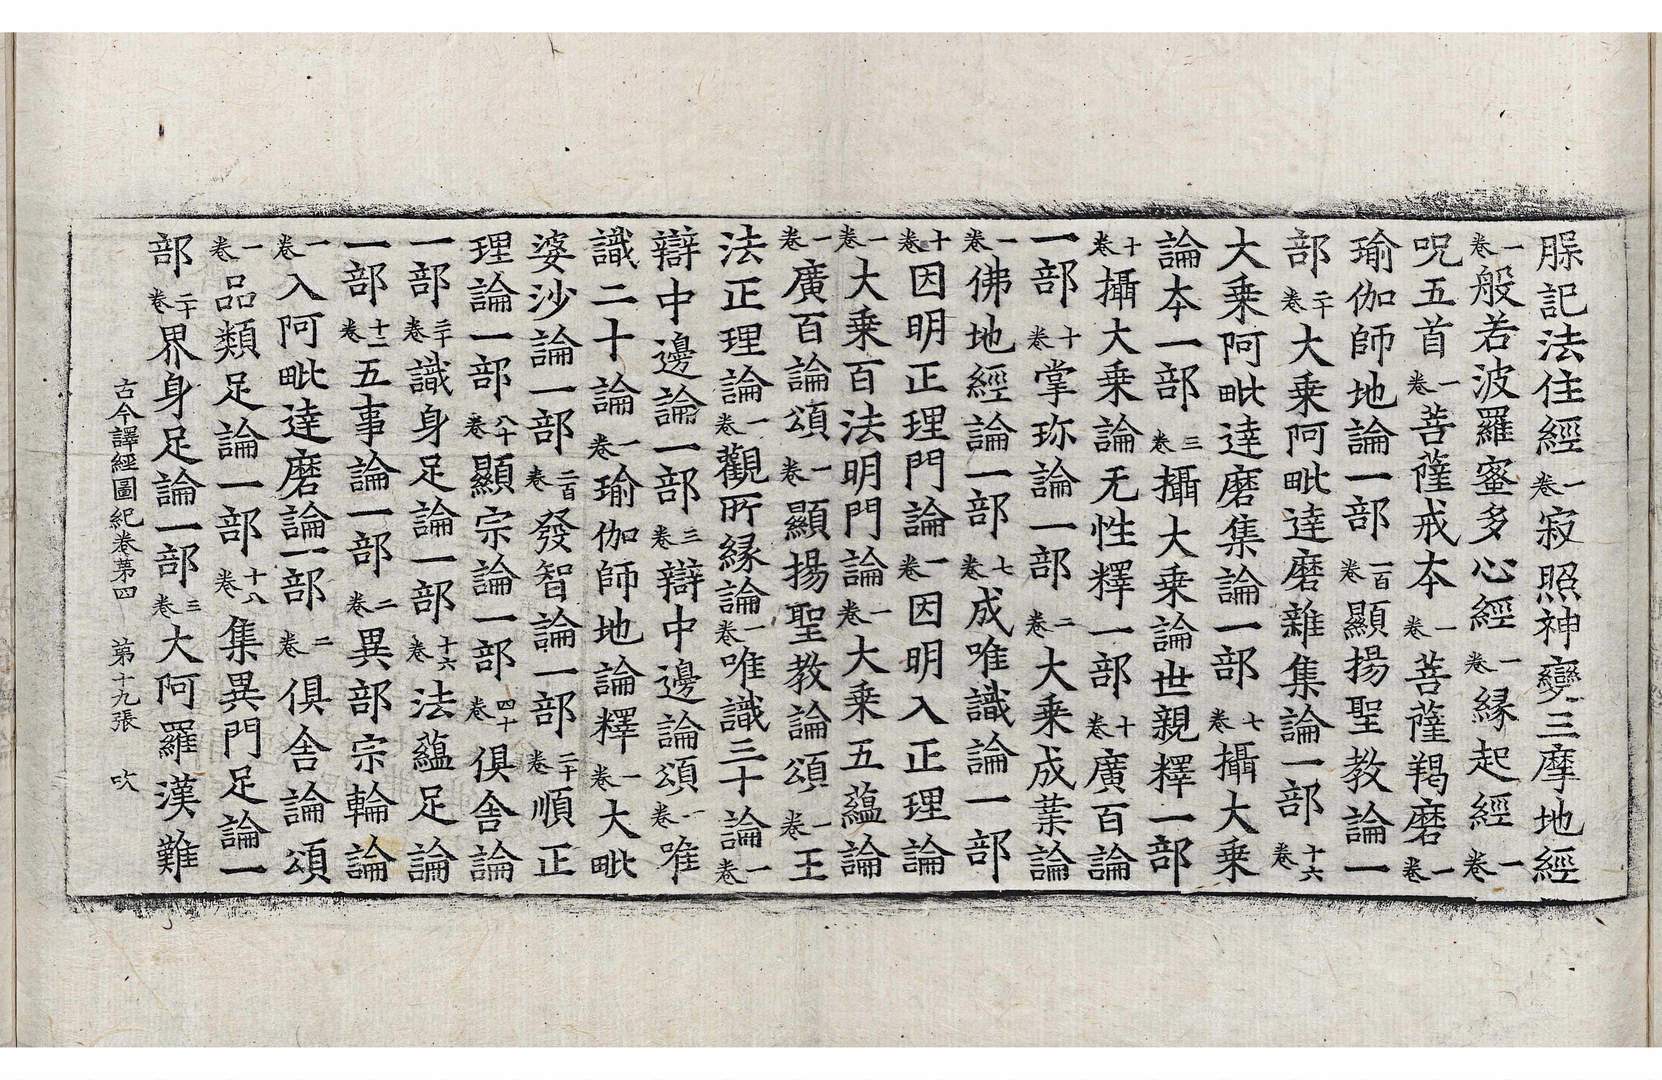 脲記法住經一卷寂照神變三摩地經
一卷般若波羅蜜多心經一卷緣起經一卷
呪五首一卷菩薩戒本一卷菩薩羯磨一卷
瑜伽師地論一部一百卷顯揚聖教論一
部二十卷大乘阿毗達磨雜集論一部十六卷
大乘阿毗達磨集論一部七卷攝大乘
論本一部三卷攝大乘論世親釋一部
十卷攝大乘論无性釋一部十卷廣百論
一部十卷掌珎論一部二卷大乘成葉論
一卷佛地經論一部七卷成唯識論一部
十卷因明正理門論一卷因明入正理論
一卷大乘百法明門論一卷大乘五蘊論
一卷廣百論頌一卷顯揚聖教論頌一卷王
法正理論一卷觀所緣論一卷唯識三十論一卷
辯中邊論一部三卷辯中邊論頌一卷唯
識二十論一卷瑜伽師地論釋一卷大毗
婆沙論一部二百卷發智論一部二十卷順正
理論一部八十卷顯宗論一部四十卷俱舍論
一部三十卷識身足論一部十六卷法蘊足論
一部十二卷五事論一部二卷異部宗輪論
一卷入阿毗達磨論一部二卷俱舍論頌
一卷品類足論一部十八卷集異門足論一
部二十卷界身足論一部三卷大阿羅漢難
古今譯經圖紀卷苐四 第十九張 吹